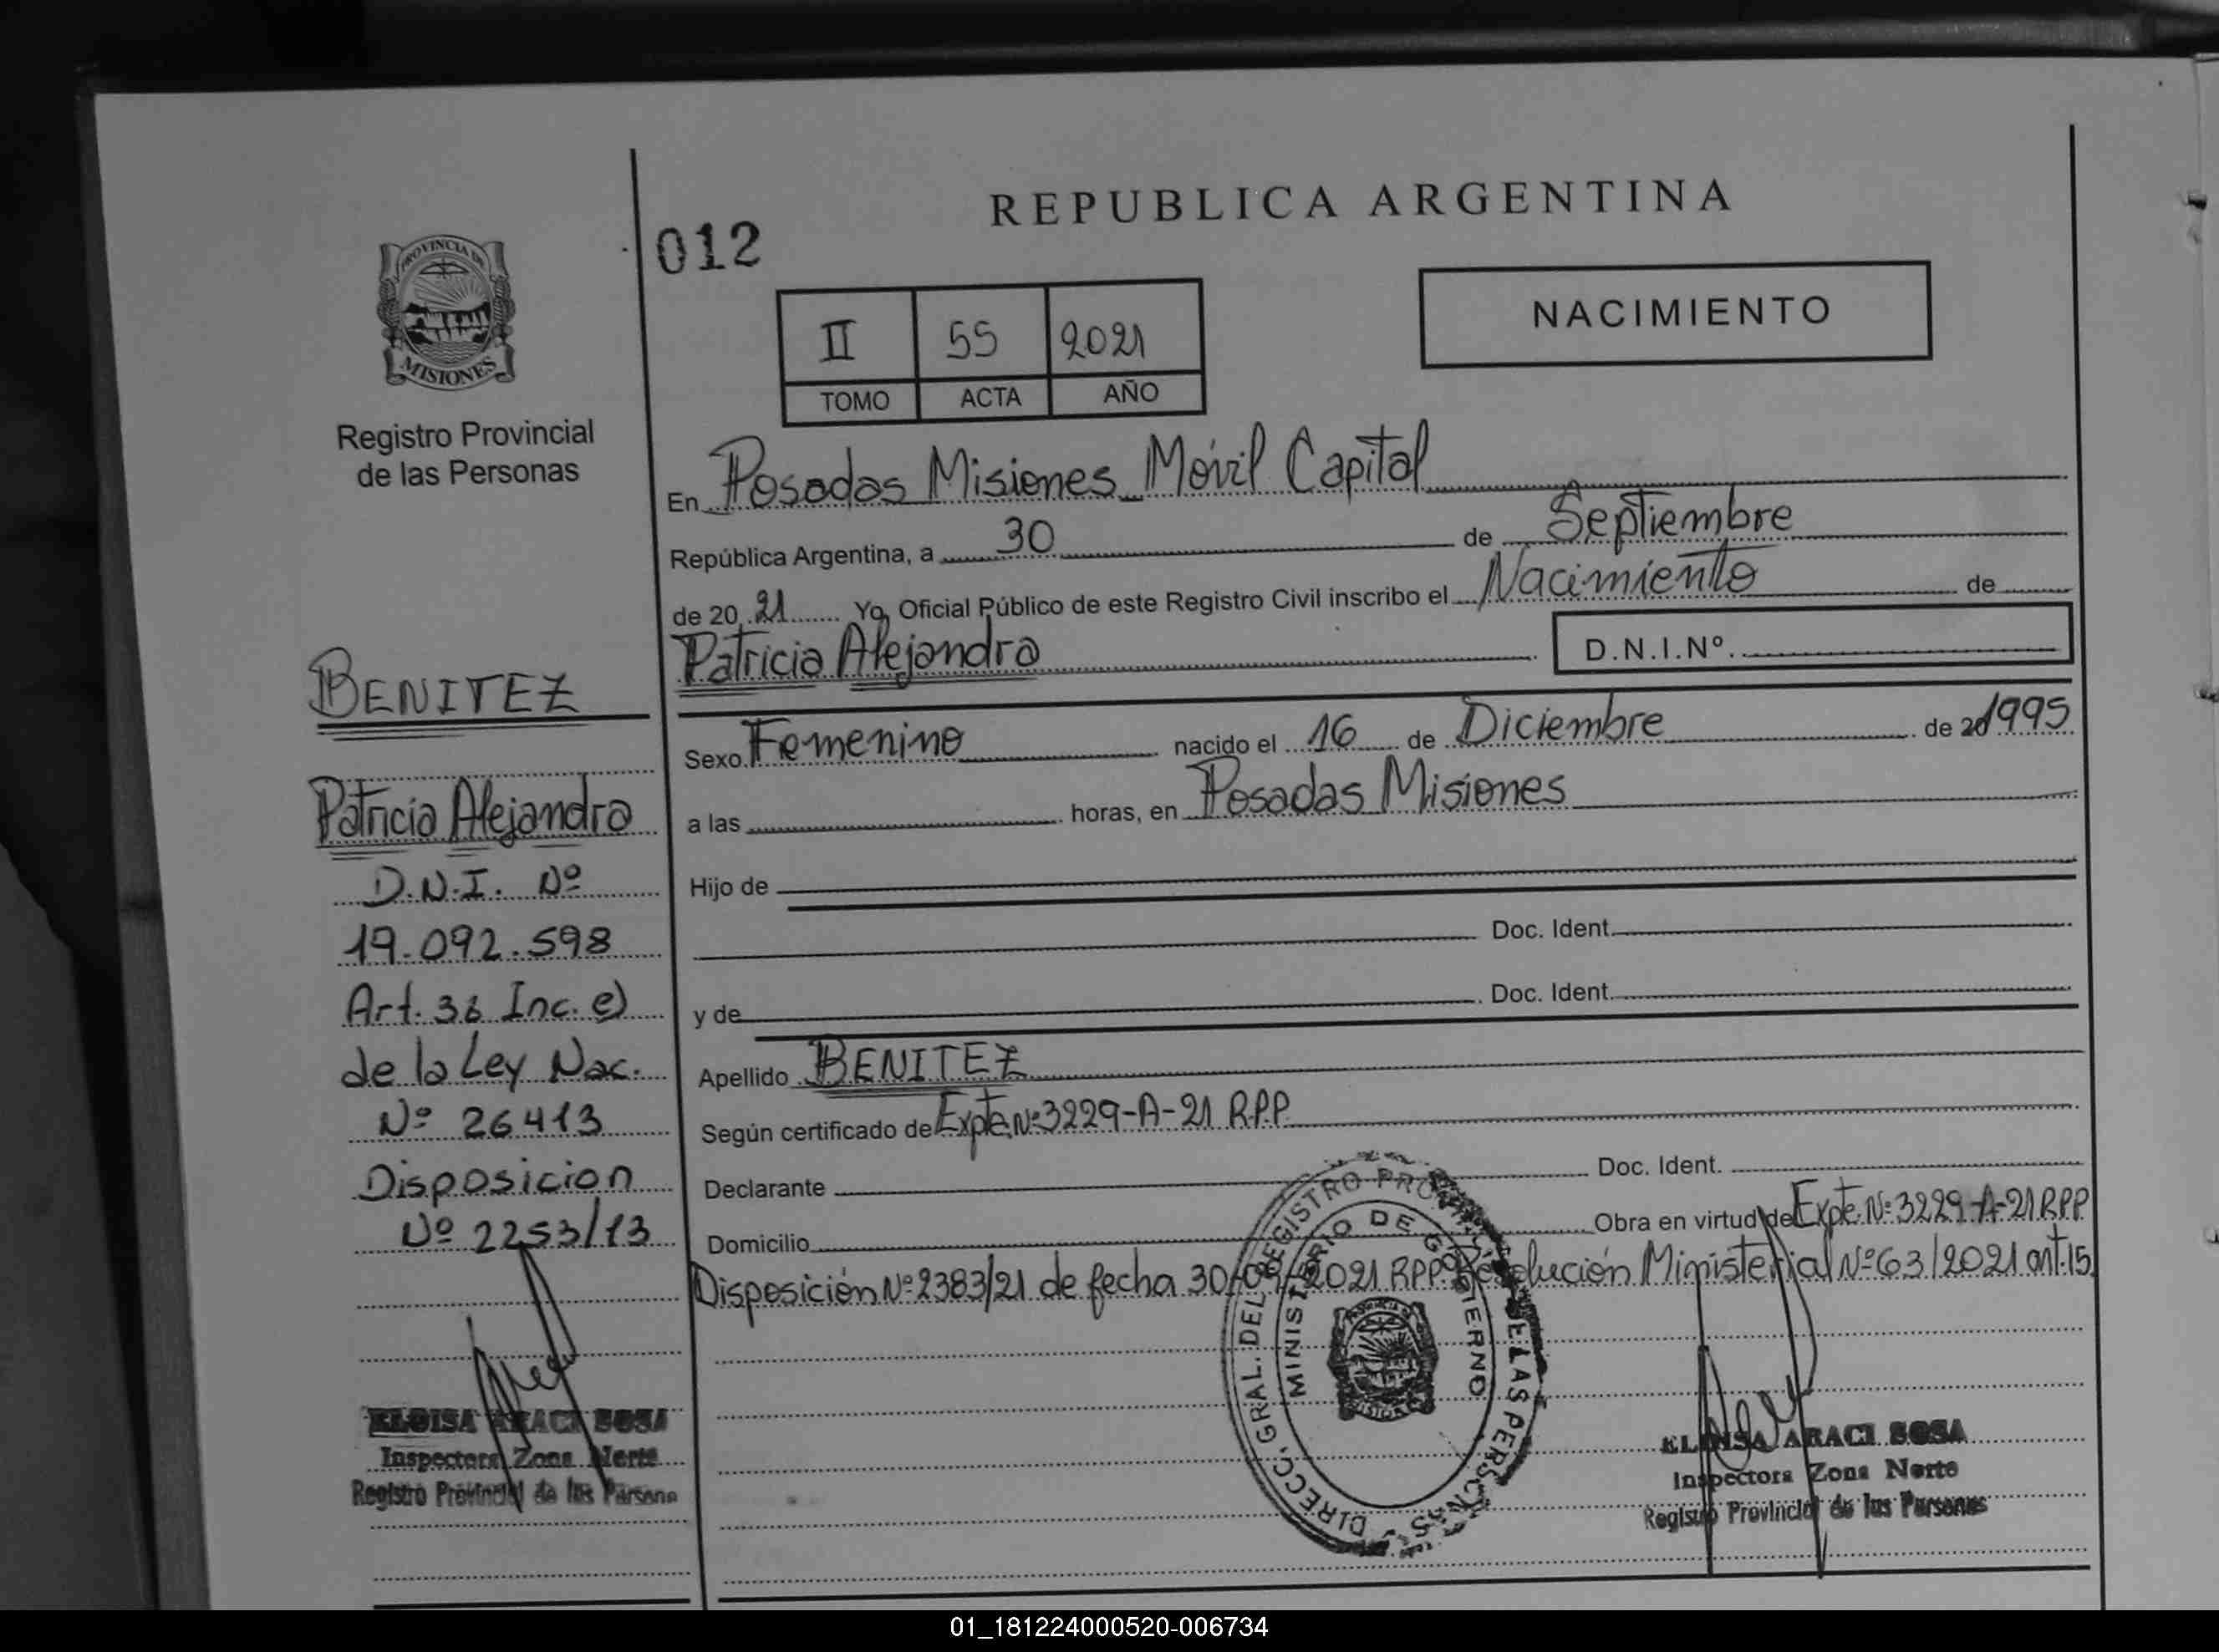 REPUBLICA ARGENTINA
012
PROVINCIA DE
MISIONES
Registro Provincial
de las Personas
II 55 2021
TOMO ACTA AÑO
NACIMIENTO
En Posadas Misiones Móvil Capital
República Argentina, a 30 de Septiembre
de 20 21 Yo, Oficial Público de este Registro Civil inscribo el Nacimiento de
Patricia Alejandra
D.N.I.Nº
Sexo Femenino nacido el 16 de Diciembre de 20 1995
a las horas, en Posadas Misiones
Hijo de
Doc. Ident.
y de Doc. Ident.
Apellido BENITEZ
Según certificado de Expte. Nº 3229-A-21 R.P.P.
Declarante Doc. Ident.
Domicilio Obra en virtud de Expte. Nº 3229-A-21 RPP
Disposición Nº 2383/21 de fecha 2021 RPP. Resolución Ministerial Nº 63/2021 art. 15
BENITEZ
Patricia Alejandra
D.N.I. Nº
19.092.598
Art. Inc. e)
de la Ley Nac.
Nº 26413
Disposicion
Nº 2253/13
ELOISA ARACI SOSA
Inspectora Zona Norte
Registro Provincial de las Persona
DIRECC. GRAL. DEL REGISTRO PROVINCIAL DE LAS PERSONAS
MINISTERIO DE GOBIERNO
ELOISA ARACI SOSA
Inspectora Zona Norte
Registro Provincial de las Personas
01_181224000520-006734